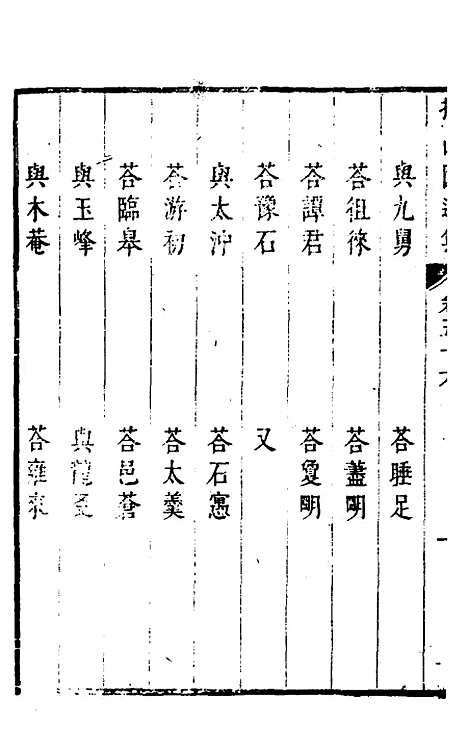 與九舅　荅睡足
荅徂徠　荅藎明
荅譚君　荅敻明
荅豫石　又
與太沖　荅石寓
荅游初　荅太羹
荅臨皋　荅邑蒼
與玉峰　與龍
與木菴　荅雍來